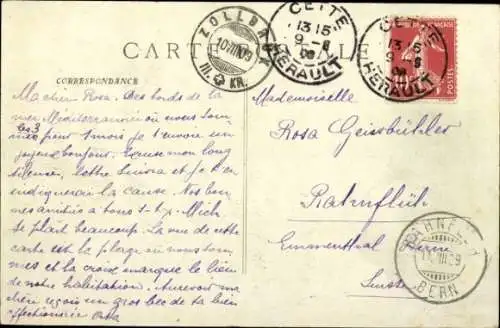 CARTE POSTALE
ZOLLBRÜCK
10.VIII.09
III. KR.
CETTE
13 15
9 -8
09
HERAULT
CETTE
13 15
9 -8
09
HERAULT
POSTES
CORRESPONDANCE
Ma chère Rosa. Des bords de la
mer Méditerranée où nous sommes
pour 1 mois je t'envoie un
joyeux bonjour. Excuse mon long
silence, lettre suivra et je t'en
indiquerai la cause. Nos bonnes
amitiés à tous
plait beaucoup. La vue de cette
carte est la plage où nous sommes
et la croix marque le lieu
de notre habitation. Au revoir ma
chère reçois un gros bec de ta bien
affectionnée
Mademoiselle
Rosa Geissbühler
Rahnflüh
Emmenthal Berne
Suisse
BERN